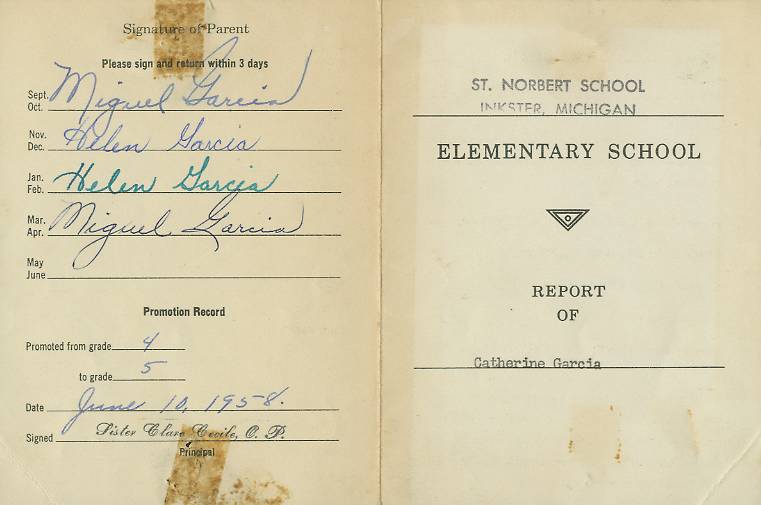 Signature of Parent
Please sign and return within 3 days
Sept.
Oct. Miguel Garcia
Nov.
Dec. Helen Garcia
Jan.
Feb. Helen Garcia
Mar.
Apr. Miguel Garcia
May
June
Promotion Record
Promoted from grade 4
to grade 5
Date June 10, 1958.
Signed Sister Clare Cecile, O. P.
Principal
ST. NORBERT SCHOOL
INKSTER, MICHIGAN
ELEMENTARY SCHOOL
REPORT
OF
Catherine Garcia